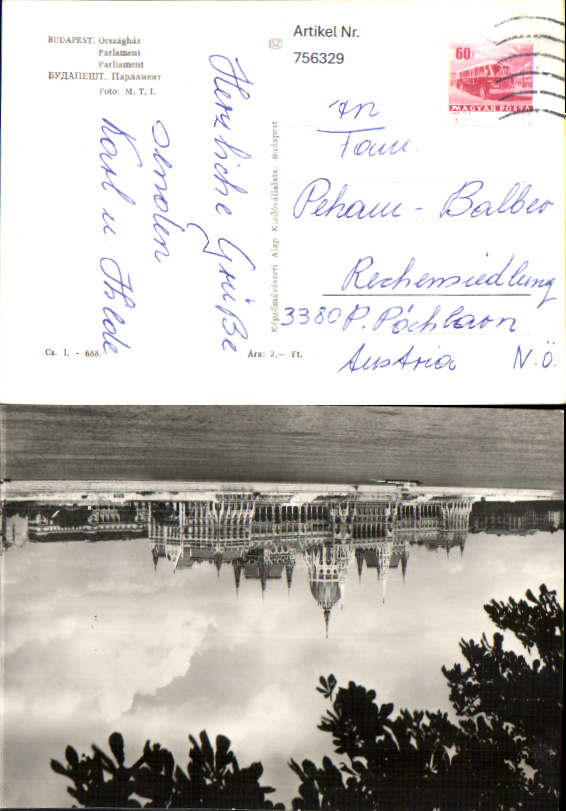 BUDAPEST. Országház
Parlament
Parliament
БУДАПЕШТ. Парламент
Foto: M. T. I.
Artikel Nr.
756329
60f
MAGYAR POSTA
Herzliche Grüße
senden
Karl u. Thlede
Képzőművészeti Alap Kiadóvállalata, Budapest
An
Fam.
Peham - Balber
Rechensiedlung
3380 P. Pöchlarn
Austria N.Ö.
Cs. I. - 688.
Ára: 2,— Ft.